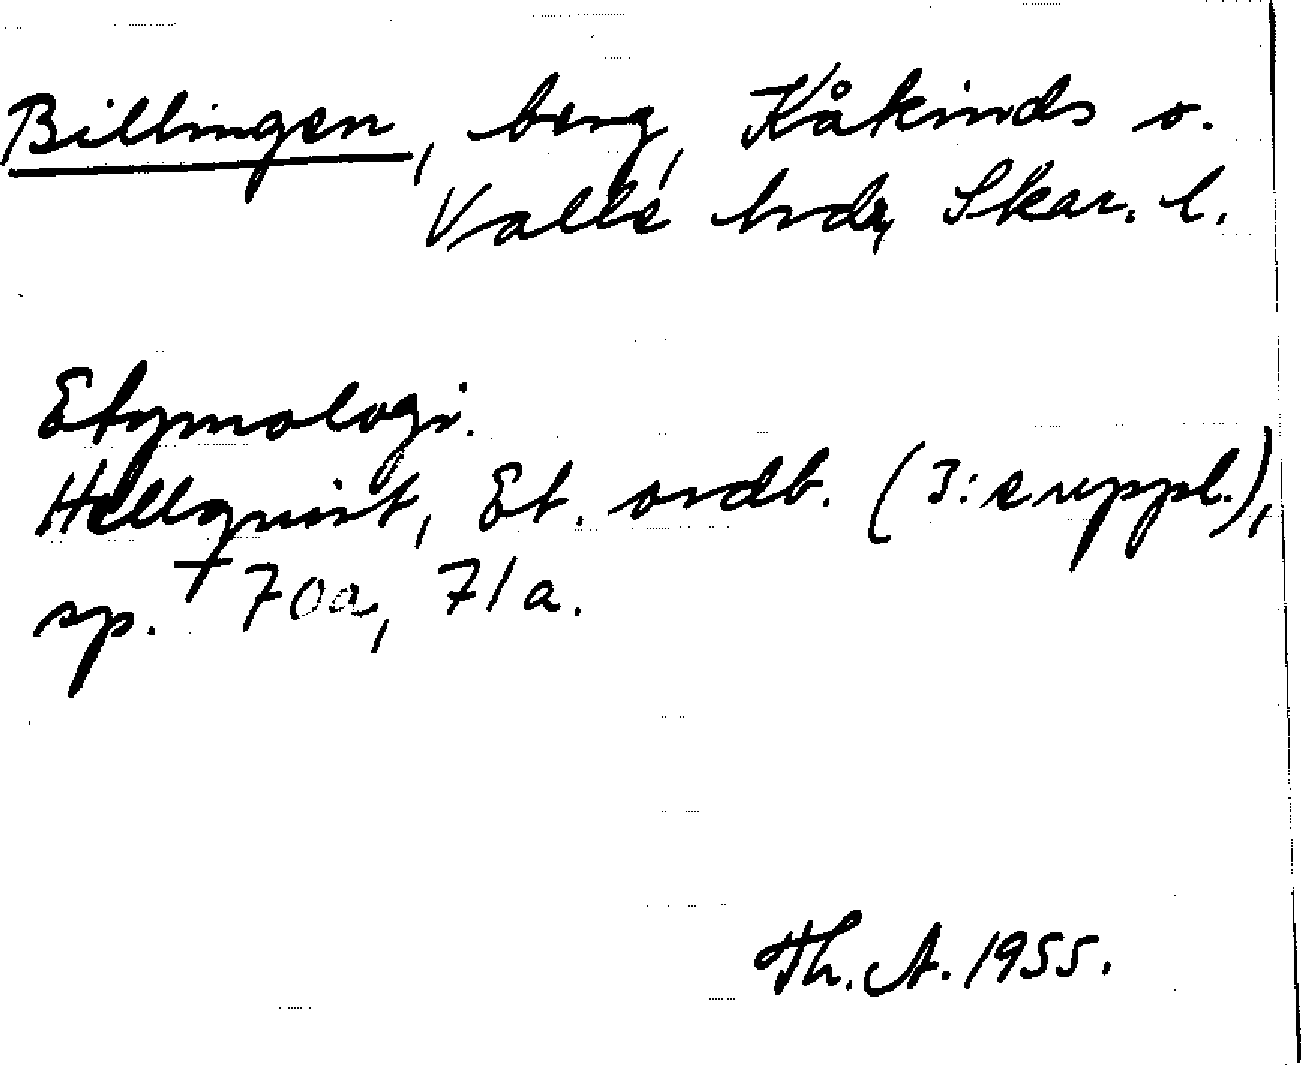 Billingen, berg, Kåkinds o.
Valle hdr, Skar. l.
Etymologi.
Hellquist, Et. ordb. (I: suppl.),
sp. 70a, 71a.
Th. A. 1955.